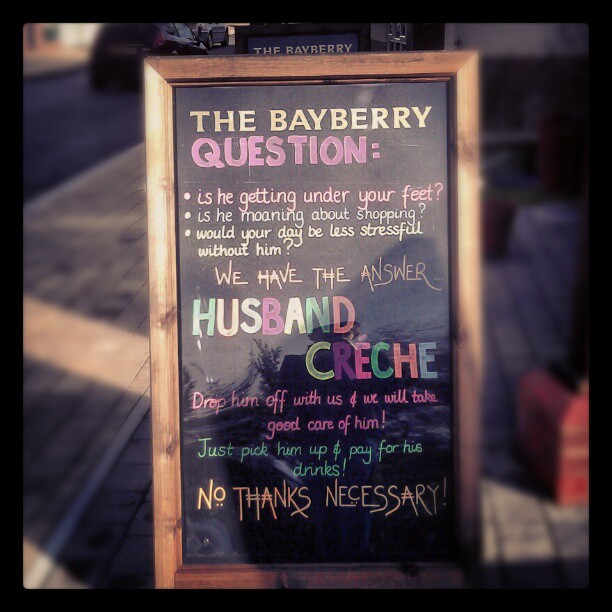 THE BAYBERRY
THE BAYBERRY
QUESTION:
• is he getting under your feet?
• is he moaning about shopping?
• would your day be less stressful
without him?
WE HAVE THE ANSWER...
HUSBAND
CRECHE
Drop him off with us & we will take
good care of him!
Just pick him up & pay for his
drinks!
NO THANKS NECESSARY!